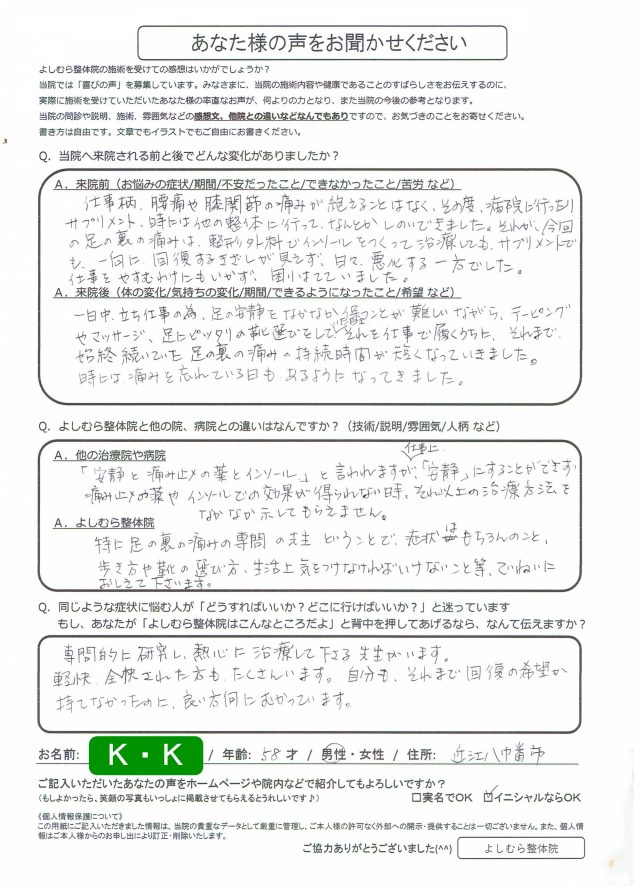 あなた様の声をお聞かせください
よしむら整体院の施術を受けての感想はいかがでしょうか？
当院では「喜びの声」を募集しています。みなさまに、当院の施術内容や健康であることのすばらしさをお伝えするのに、
実際に施術を受けていただいたあなた様の率直なお声が、何よりの力となり、また当院の今後の参考となります。
当院の問診や説明、施術、雰囲気などの感想文、他院との違いなどなんでもありですので、お気づきのことをお寄せください。
書き方は自由です。文章でもイラストでもご自由にお書きください。
Q．当院へ来院される前と後でどんな変化がありましたか？
A．来院前（お悩みの症状/期間/不安だったこと/できなかったこと/苦労 など）
仕事柄、腰痛や膝関節の痛みが絶えることはなく、その度、病院に行ったり
サプリメント、時には他の整体に行って、なんとかしのいできました。それが、今回
の足の裏の痛みは、整形外科でインソールをつくって治療しても、サプリメントで
も、一向に回復するきざしが見えず、日々、悪化する一方でした。
仕事をやすむわけにもいかず、困りはてていました。
A．来院後（体の変化/気持ちの変化/期間/できるようになったこと/希望 など）
一日中、立ち仕事の為、足の安静をなかなか得ることが難しいながら、テーピング
やマッサージ、足にピッタリの靴選びをして、それを仕事で履くうちに、それまで
始終続いていた足の裏の痛みの持続時間が短くなっていきました。
時には痛みを忘れている日もあるようになってきました。
Q．よしむら整体院と他の院、病院との違いはなんですか？（技術/説明/雰囲気/人柄 など）
A．他の治療院や病院
「安静と痛み止めの薬とインソール」と言われますが、仕事上「安静」にすることができず
痛み止めの薬やインソールでの効果が得られない時、それ以上の治療方法を
なかなか示してもらえません。
A．よしむら整体院
特に足の裏の痛みの専門の先生ということで、症状はもちろんのこと、
歩き方や靴の選び方、生活上気をつけなければいけないこと等、ていねいに
おしえて下さいます。
Q．同じような症状に悩む人が「どうすればいいか？どこに行けばいいか？」と迷っています
もし、あなたが「よしむら整体院はこんなところだよ」と背中を押してあげるなら、なんて伝えますか？
専門的に研究し、熱心に治療して下さる先生がいます。
軽快、全快された方も、たくさんいます。自分も、それまで回復の希望が
持てなかったのに、良い方向にむかっています。
お名前: K・K / 年齢: 58才 / 男性・女性 / 住所: 近江八幡市
ご記入いただいたあなたの声をホームページや院内などで紹介してもよろしいですか？
（もしよかったら、笑顔の写真もいっしょに掲載させてもらえるとうれしいです♪） □実名でOK ☑イニシャルならOK
《個人情報保護について》
この用紙にご記入いただきました情報は、当院の貴重なデータとして厳重に管理し、ご本人様の許可なく外部への開示・提供することは一切ございません。また、個人情
報はご本人様からのお申し出により訂正・削除いたします。
ご協力ありがとうございました(^^) よしむら整体院